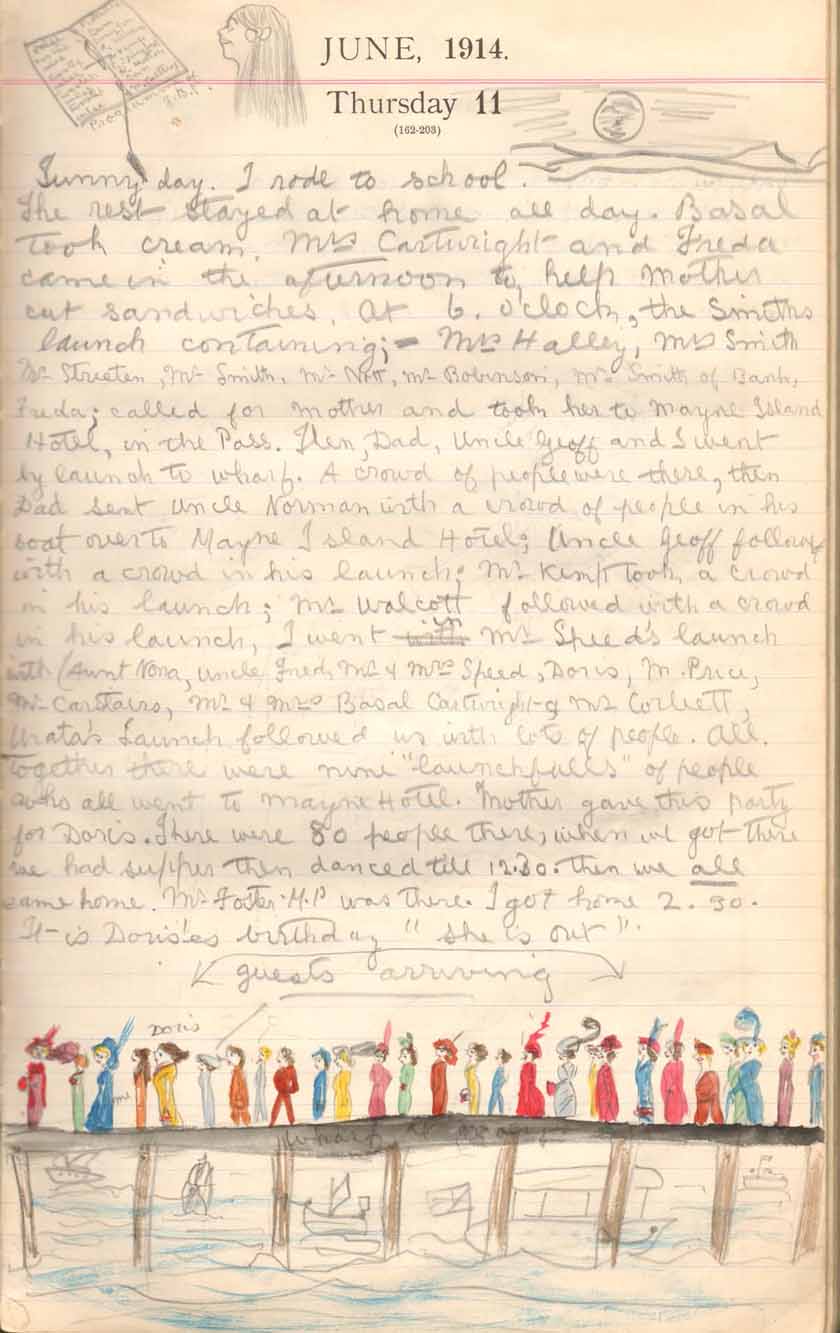 JUNE, 1914.
Thursday 11
(162-203)
Programme
Sunny day. I rode to school.
The rest stayed at home all day. Basal
took cream. Mrs Cartwright and Freda
came in the afturnoon to help mother
cut sandwiches. At 6. o'clock, the Smiths
launch containing;- Mrs Halley, Mrs Smith
Mr Streeten, Mr Smith, Mr Nott, Mr Robinson, Mr Smith of Bank,
Freda; called for mother and took her to Mayne Island
Hotel, in the Pass. Then, Dad, Uncle Geoff and I went
by launch to wharf. A crowd of people were there, then
Dad sent Uncle Norman with a crowd of people in his
boat over to Mayne Island Hotel; Uncle Geoff followed
with a crowd in his launch; Mr Kemp took a crowd
in his launch; Mr Walcott followed with a crowd
in his launch, I went with in Mr Speed's launch
with (Aunt Nora, Uncle Fred, Mr & Mrs Speed, Doris, M. Price,
Mr Carstairs, Mr & Mrs Basal Cartwright & Mr Corbett,
Urata's Launch followed us with lots of people. All.
together there were nine "launchfulls" of people
who all went to Mayne Hotel. Mother gave this party
for Doris. There were 80 people there, when we got there
we had supper then danced till 12.30. then we all
came home. Mr Foster M.P was there. I got home 2.30.
It is Doris'es birthday "she is out".
guests arriving
Doris
me
wharf at